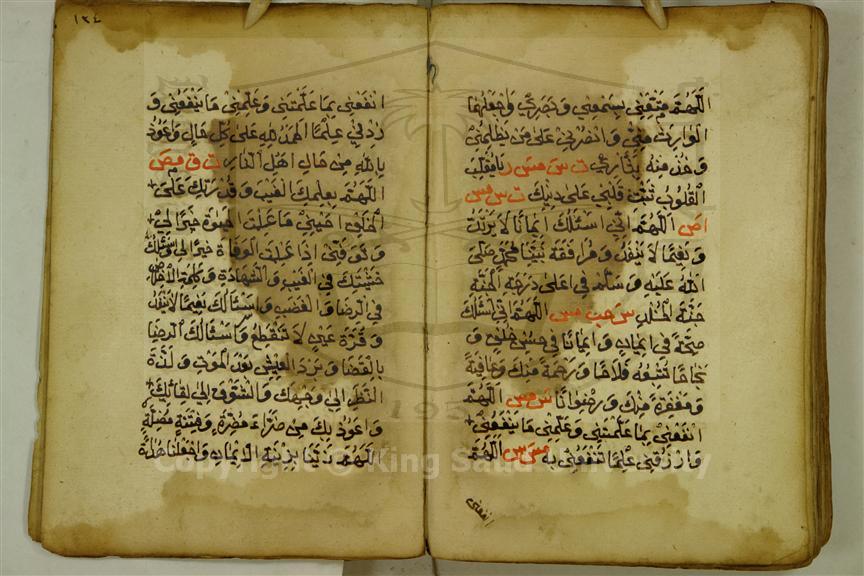 اللهم متعني بسمعي وبصري واجعلهما
الوارث مني وانصرني على من يظلمني
وخذ منه بثاري ت س مس ر يا مقلب
القلوب ثبت قلبي على دينك ت س مس
اص اللهم اني اسئلك ايمانا لا يرتد
ونعيما لا ينفد ومرافقة نبينا محمد صلى
الله عليه وسلم في اعلى درجة الجنة
جنة الخلد س حب مس اللهم اني اسئلك
صحة في ايمان وايمانا في حسن خلق و
نجاحا تتبعه فلاحا ورحمة منك وعافية
ومغفرة منك ورضوانا س مس اللهم
انفعني بما علمتني وعلمني ما ينفعني
وارزقني علما تنفعني به مس س اللهم
انفعني
١٣٤
انفعني بما علمتني وعلمني ما ينفعني و
زدني علما الحمد لله على كل حال واعوذ
بالله من حال اهل النار ت ق مص
اللهم بعلمك الغيب وقدرتك على
الخلق احيني ما علمت الحيوة خيرا لي
وتوفني اذا علمت الوفاة خيرا لي واسئلك
خشيتك في الغيب والشهادة وكلمة الاخلاص
في الرضا والغضب واسئالك نعيما لا ينفد
وقرة عين لا تنقطع واسئالك الرضا
بالقضا وبرد العيش بعد الموت ولذة
النظر الى وجهك والشوق الى لقائك
واعوذ بك من ضراء مضرة وفتنة مضلة
اللهم زينا بزينة الايمان واجعلنا هداة
Copyright © King Saud University
195